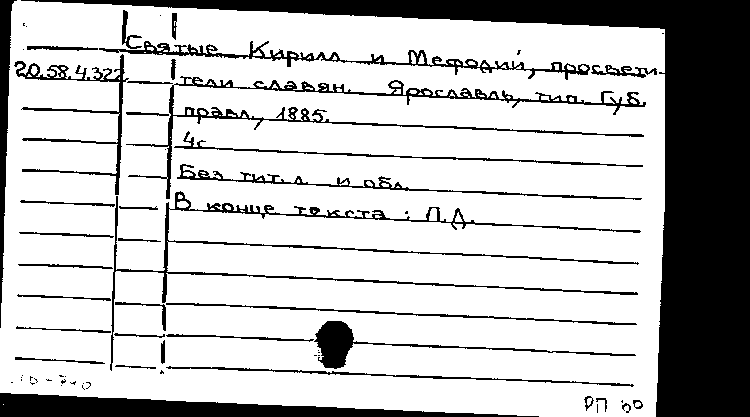 Святые Кирилл и Мефодий, просвети-
20.58.4.322 тели славян. Ярославль, тип. Губ.
правл., 1885.
4с
Без тит. л и обл.
В конце текста: П.Д.
РП